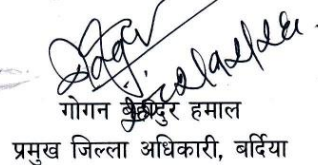 गोगन बहादुर हमाल
प्रमुख जिल्ला अधिकारी, बर्दिया